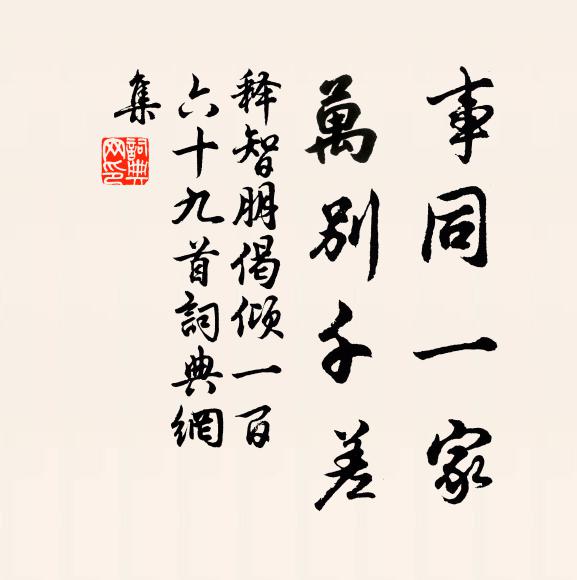 事同一家
萬別千差
释智朋偈倾一百
六十九首詞典網
集
詞典
网印